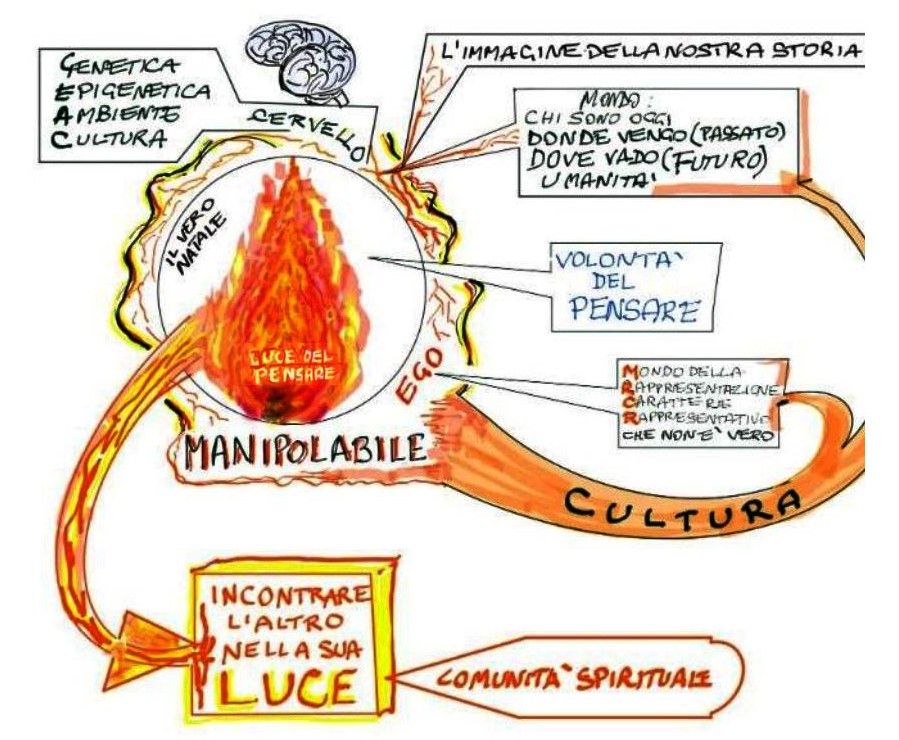 GENETICA
EPIGENETICA
AMBIENTE
CULTURA
CERVELLO
L'IMMAGINE DELLA NOSTRA STORIA
MONDO:
CHI SONO OGGI
DONDE VENGO (PASSATO)
DOVE VADO (FUTURO)
UMANITA'
IL VERO
NATALE
VOLONTA'
DEL
PENSARE
LUCE DEL
PENSARE
EGO
MONDO DELLA
RAPPRESENTAZIONE
CARATTERE
RAPPRESENTATIVO
CHE NON E' VERO
MANIPOLABILE
CULTURA
INCONTRARE
L'ALTRO
NELLA SUA
LUCE
COMUNITA' SPIRITUALE